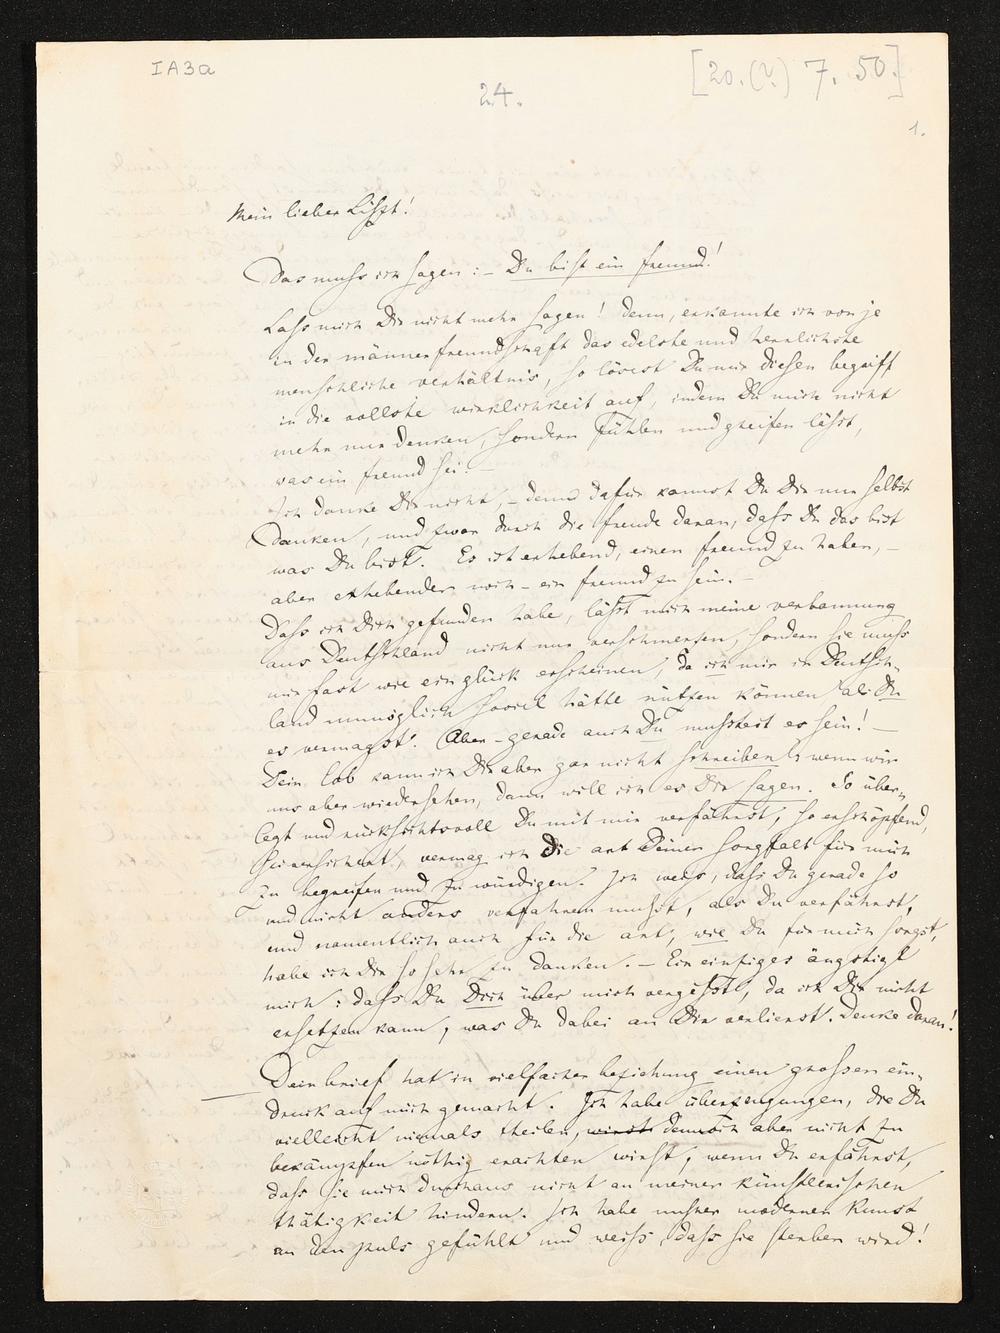 IA3a
[20.(?) 7. 50.]
24.
1.
Mein lieber Liszt!
Das muss ich sagen: – Du bist ein freund!
Lass mich Dir nicht mehr sagen! denn, erkannte ich von je
in der männerfreundschaft das edelste und herrlichste
menschliche verhältnis, so lösest Du mir diesen begriff
in die vollste wirklichkeit auf, indem Du mich nicht
mehr nur denken, sondern fühlen und greifen lässt,
was ein freund sei. –
Ich danke Dir nicht, – denn dafür kannst Du Dir nur selbst
danken, und zwar durch die freude daran, dass Du das bist
was Du bist. Es ist erhebend, einen freund zu haben, –
aber erhebender noch – ein freund zu sein. –
Dass ich Dich gefunden habe, lässt mich meine verbannung
aus Deutschland nicht nur verschmerzen, sondern sie muss
mir fast wie ein glück erscheinen, da ich mir in Deutsch-
land unmöglich soviel hätte nützen können als Du
es vermagst. Aber – gerade auch Du musstest es sein! –
Dein lob kann ich Dir aber gar nicht schreiben; wenn wir
uns aber wiedersehen, dann will ich es Dir sagen. So über-
legt und rücksichtsvoll Du mit mir verfährst, so erschöpfend,
sei versichert, vermag ich die art Deiner sorgfalt für mich
zu begreifen und zu würdigen. Ich weiss, dass Du gerade so
und nicht anders verfahren musst, als Du verfährst,
und namentlich auch für die art, wie Du für mich sorgst,
habe ich Dir so sehr zu danken. – Ein einziges ängstigt
mich: dass Du Dich über mich vergisst, da ich Dir nicht
ersetzen kann, was Du dabei an Dir verlierst. Denke daran!
Dein brief hat in vielfacher beziehung einen grossen ein-
druck auf mich gemacht. Ich habe überzeugungen, die Du
vielleicht niemals theilen, wirst dennoch aber nicht zu
bekämpfen nöthig erachten wirst, wenn Du erfährst,
dass sie mich durchaus nicht an meiner künstlerischen
thätigkeit hindern. Ich habe unsrer modernen kunst
an den puls gefühlt und weiss, dass sie sterben wird!